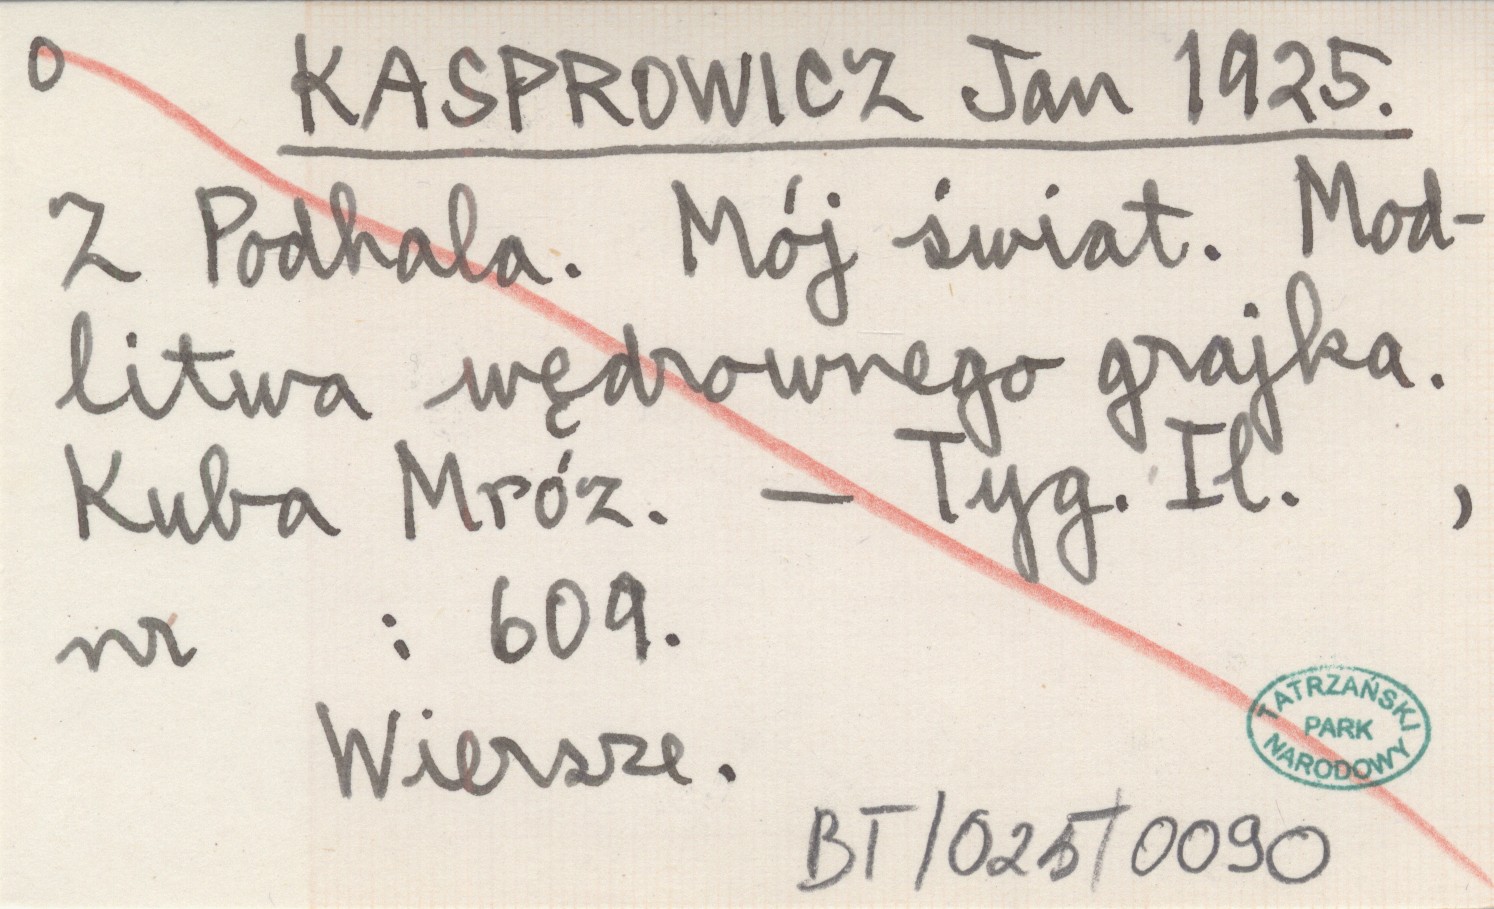 O KASPROWICZ Jan 1925.
Z Podhala. Mój świat. Mod-
litwa wędrownego grajka.
Kuba Mróz. — Tyg. Il. ,
nr : 609.
Wiersze.
TATRZAŃSKI
PARK
NARODOWY
BT/025/0090